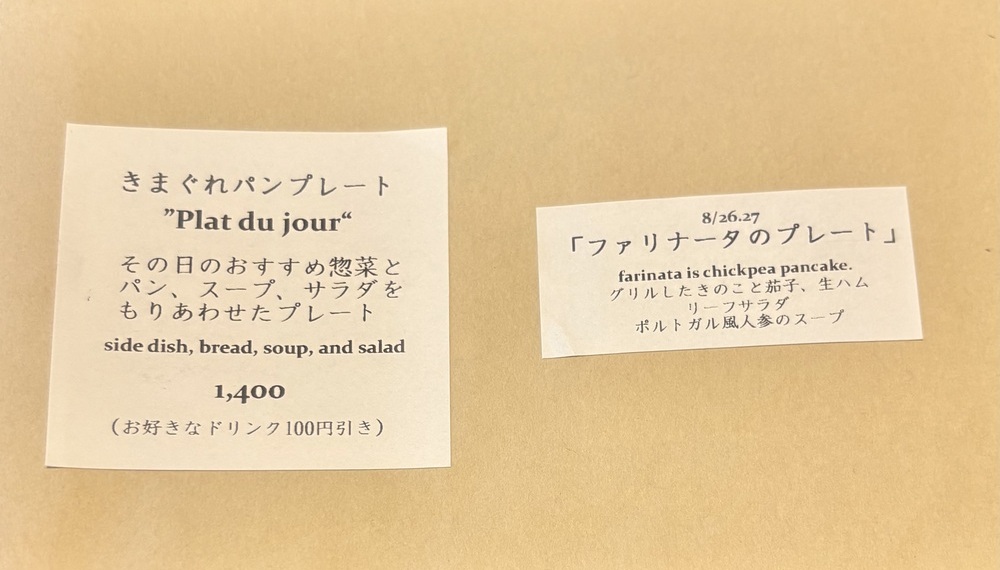 きまぐれパンプレート
”Plat du jour“
その日のおすすめ惣菜と
パン、スープ、サラダを
もりあわせたプレート
side dish, bread, soup, and salad
1,400
（お好きなドリンク100円引き）
8/26.27
「ファリナータのプレート」
farinata is chickpea pancake.
グリルしたきのこと茄子、生ハム
リーフサラダ
ポルトガル風人参のスープ